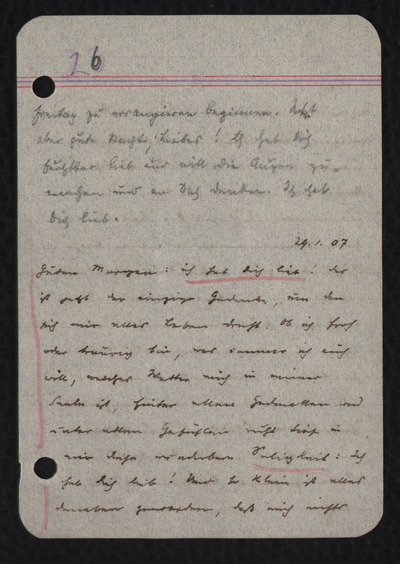 26
Freitag zu arrangieren beginnen. Jetzt
aber gute Nacht, Lieber! Ich hab Dich
furchtbar lieb und will die Augen zu-
machen und an Dich denken. Ich hab
Dich lieb.
29.1.07
Guten Morgen: ich hab Dich lieb! das
ist jetzt der einzige Gedanke, um den
sich mir alles Leben dreht. Ob ich froh
oder traurig bin, was immer ich auch
will, welches Wetter auch in meiner
Seele ist, hinter allen Gedanken und
unter allen Gefühlen ruht tief in
mir diese Seligkeit: Ich
hab Dich lieb! Und so klein ist alles
daneben geworden, daß mich nichts